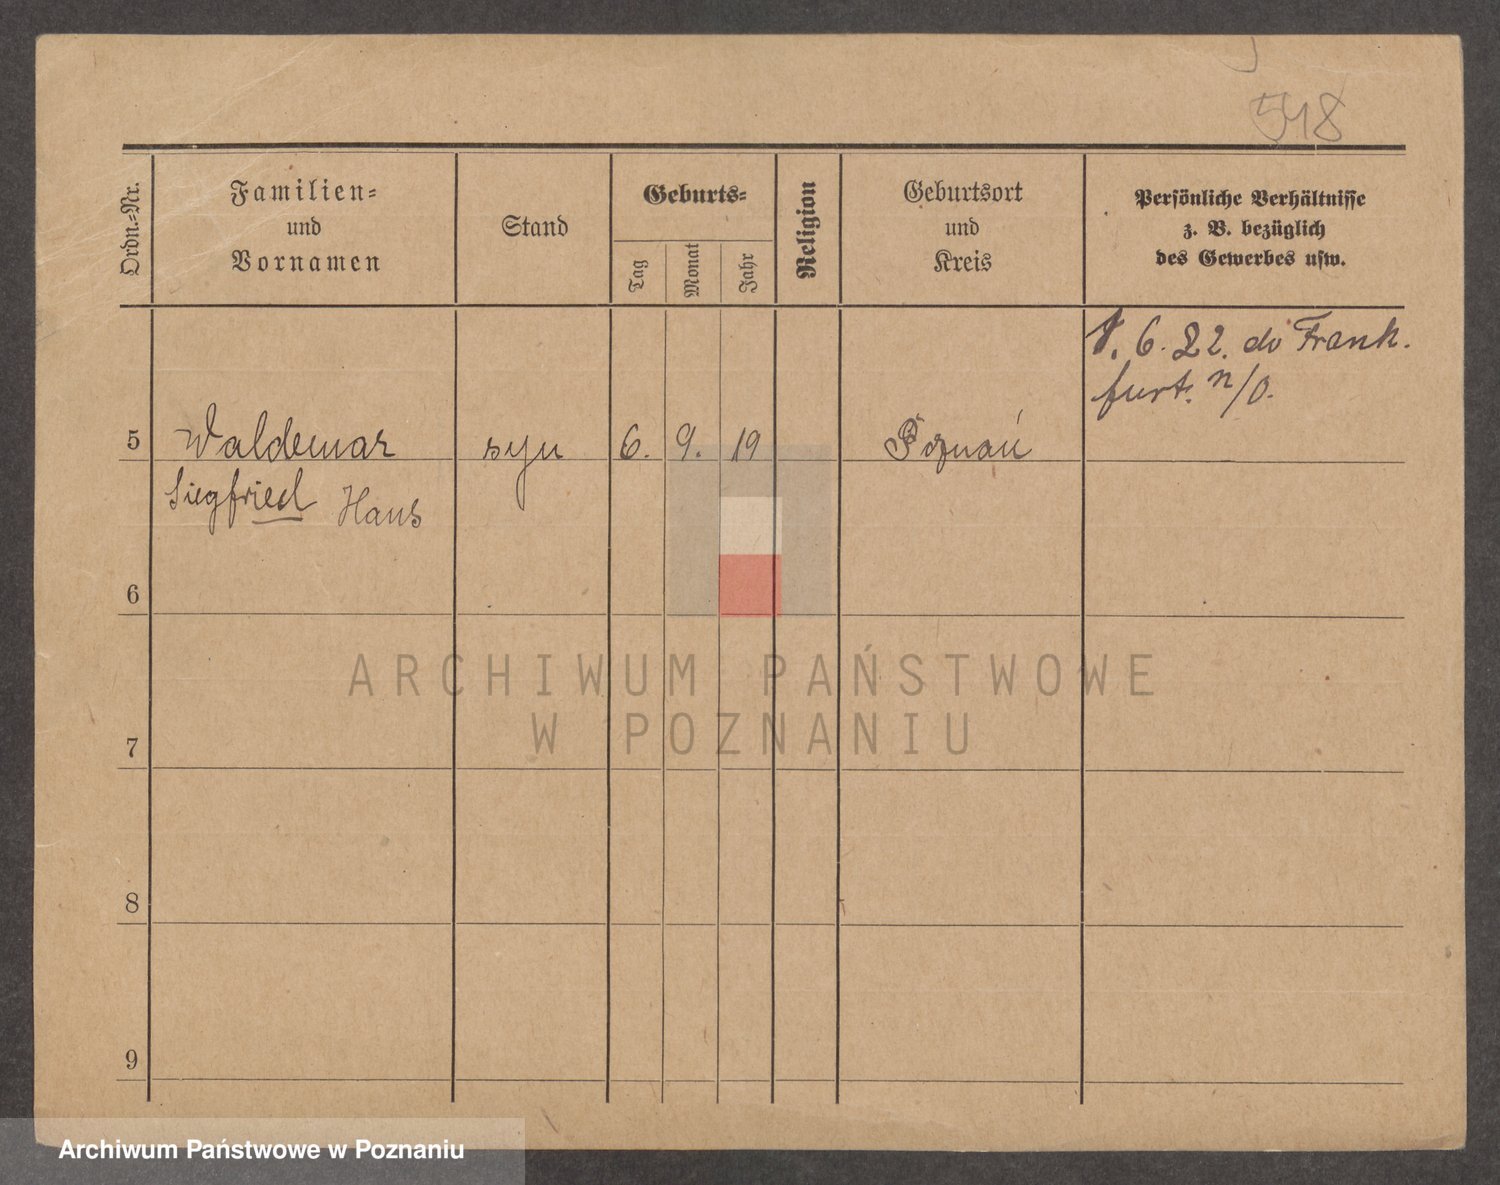 548
Ordn.-Nr.
Familien-
und
Vornamen
Stand
Geburts-
Tag
Monat
Jahr
Religion
Geburtsort
und
Kreis
Persönliche Verhältnisse
z. B. bezüglich
des Gewerbes usw.
6. 22. do Frank.
furt. n/O.
5 Waldemar syn 6. 9. 19 Poznań
Siegfried Hans
6
7
8
9
ARCHIWUM PAŃSTWOWE
W POZNANIU
Archiwum Państwowe w Poznaniu